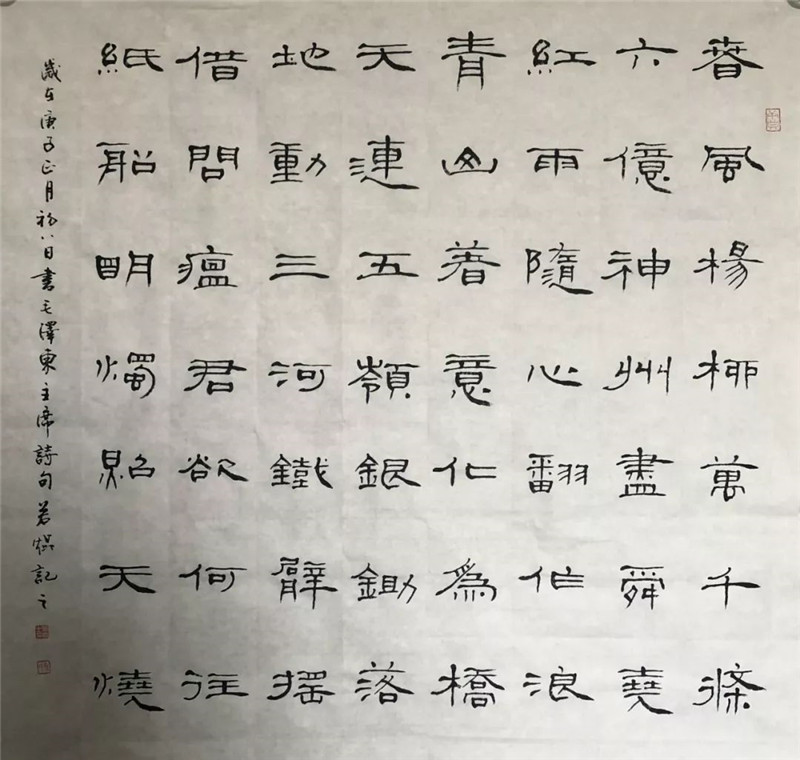 春風楊柳萬千條
六億神州盡舜堯
紅雨隨心翻作浪
青山著意化為橋
天連五嶺銀鋤落
地動三河鐵臂搖
借問瘟君欲何往
紙船明燭照天燒
歲在庚子正月初八日書毛澤東主席詩句若焜記之